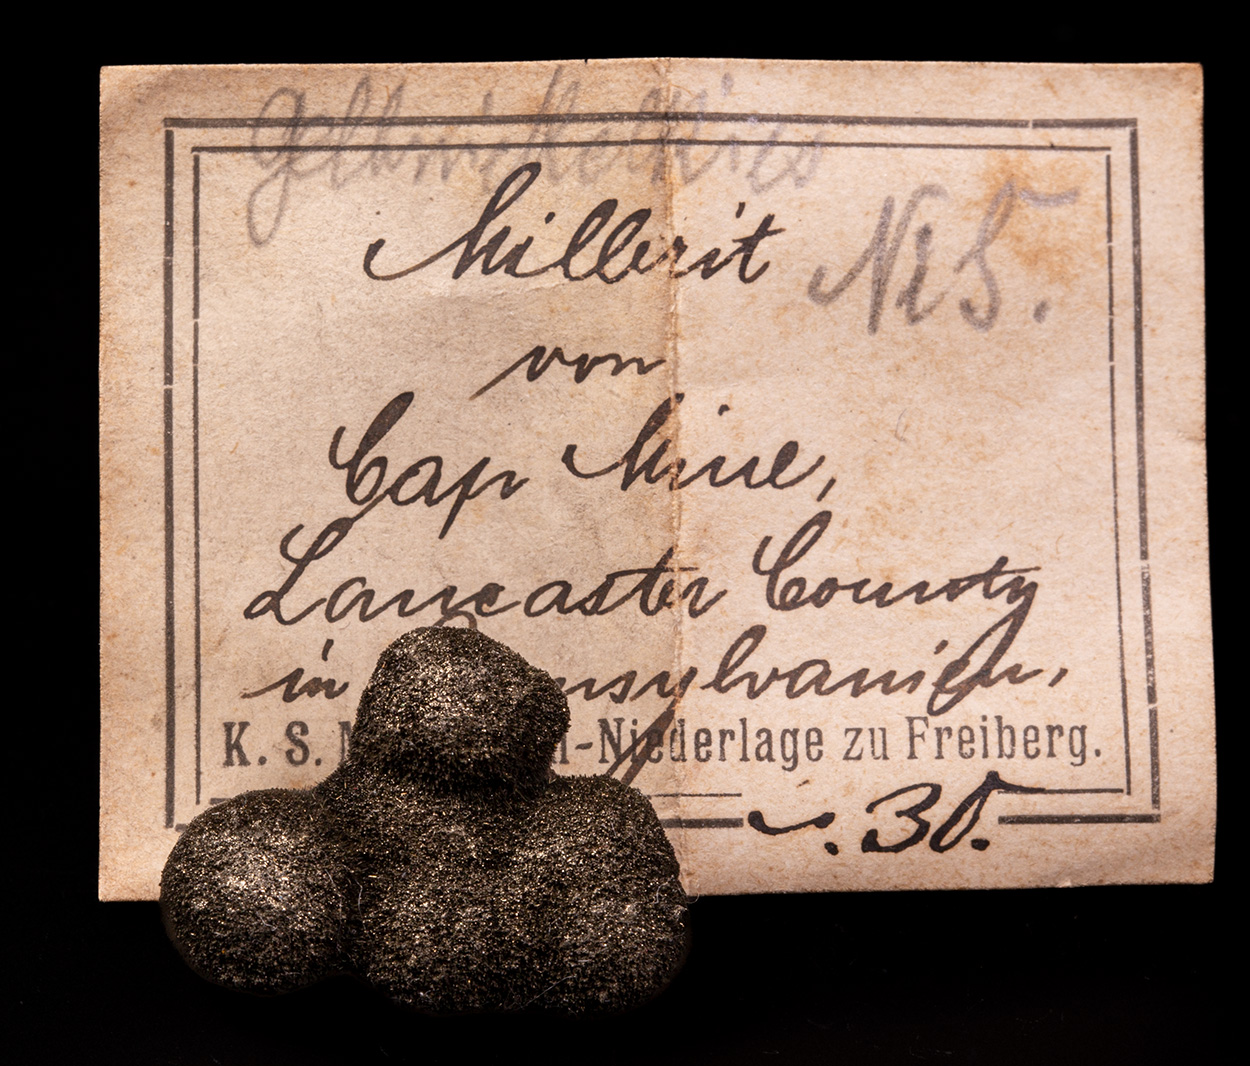 Gelbnickelkies
Millerit NiS.
von
Cap Mine,
Lancaster County
in nsylvanien.
K. S. M l-Niederlage zu Freiberg.
30.